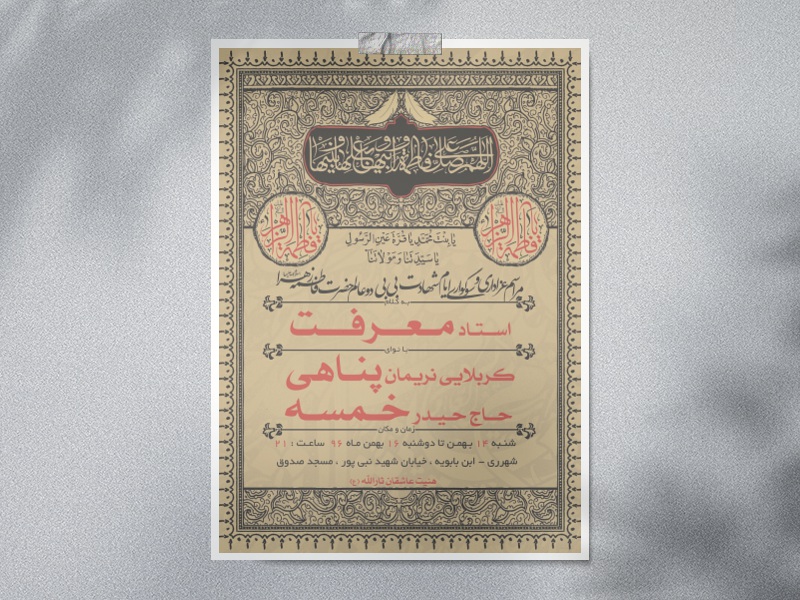 اللهم صل علی فاطمة و ابیها و بعلها و بنیها
یا فاطمة الزهرا
یا فاطمة الزهرا
یا بِنْتَ مُحَمَّدٍ یا قُرَّةَ عَیْنِ الرَّسُولِ
یا سَیِّدَتَنا وَ مَوْلاتَنا
مراسم عزاداری و سوگواری ایام شهادت بی بی دو عالم حضرت فاطمه زهرا
استاد معرفت
با نوای
کربلایی نریمان پناهی
حاج حیدر خمسه
زمان و مکان
شنبه ۱۴ بهمن تا دوشنبه ۱۶ بهمن ماه ۹۶ ساعت : ۲۱
شهرری - ابن بابویه ، خیابان شهید نبی پور ، مسجد صدوق
هیئت عاشقان ثارالله (ع)